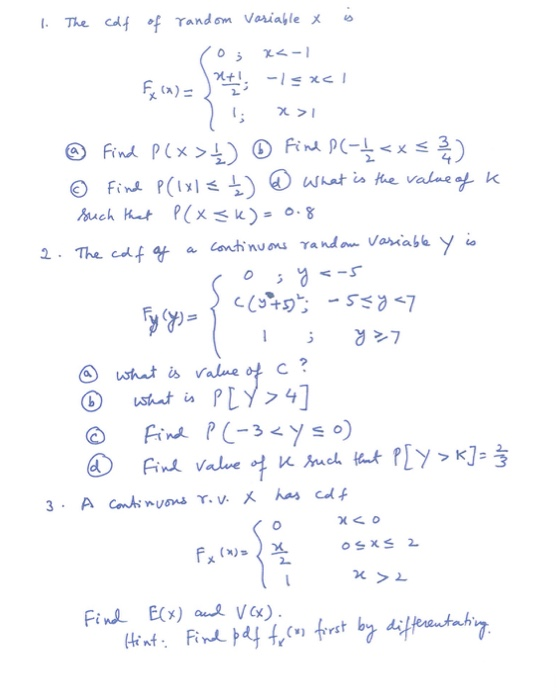 1. The cdf of random Variable X is
0 ; x<-1
F_X(x) = { x+1/2 ; -1≤x<1
1 ; x>1
ⓐ Find P(X>1/2) ⓑ Find P(-1/2<x≤3/4)
ⓒ Find P(|x|≤1/2) ⓓ What is the value of K
Such that P(X≤K)=0.8
2. The cdf of a continuous random Variable Y is
0 ; y<-5
F_y(y) = { C(y+5)²; -5≤y<7
1 ; y≥7
ⓐ what is value of C?
ⓑ what is P[Y>4]
ⓒ Find P(-3<Y≤0)
ⓓ Find value of K such that P[Y>K]=2/3
3. A continuous r.v. X has cdf
0 x<0
F_X(x) = { x/2 0≤x≤2
1 x>2
Find E(X) and V(X).
Hint: Find pdf f_X(x) first by differentating.